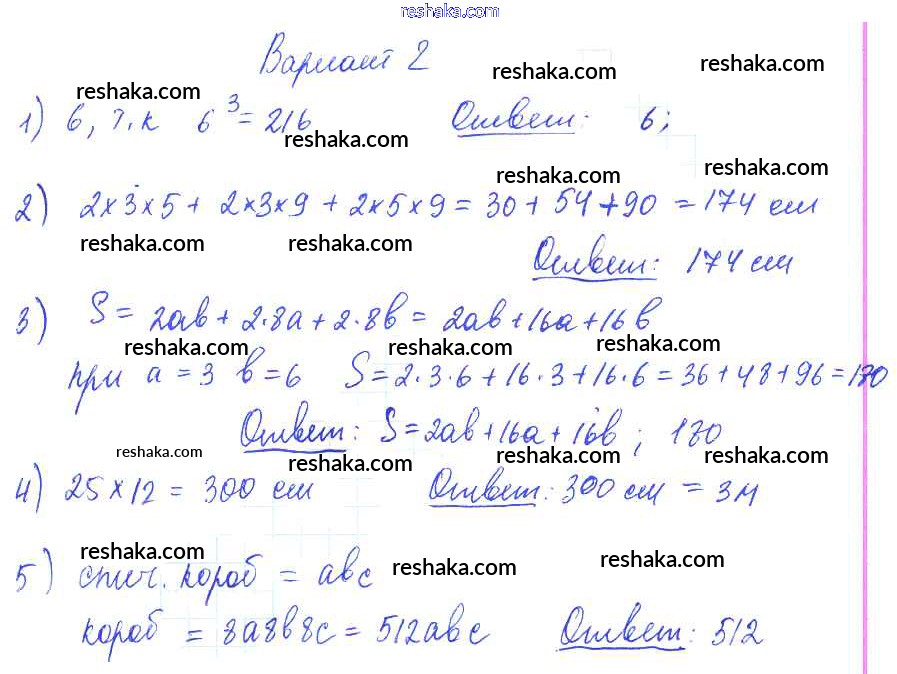 reshaka.com
Вариант 2
reshaka.com reshaka.com reshaka.com
1) 6, т.к 6³ = 216 Ответ: 6;
reshaka.com reshaka.com reshaka.com
2) 2×3×5 + 2×3×9 + 2×5×9 = 30 + 54 + 90 = 174 см
reshaka.com reshaka.com
Ответ: 174 см
3) S = 2ab + 2·8a + 2·8b = 2ab + 16a + 16b
reshaka.com reshaka.com reshaka.com
при a = 3 b = 6 S = 2·3·6 + 16·3 + 16·6 = 36 + 48 + 96 = 180
Ответ: S = 2ab + 16a + 16b; 180
reshaka.com reshaka.com reshaka.com reshaka.com
4) 25 × 12 = 300 см Ответ: 300 см = 3м
reshaka.com reshaka.com reshaka.com
5) спич. короб = abc
короб = 8a8b8c = 512abc Ответ: 512